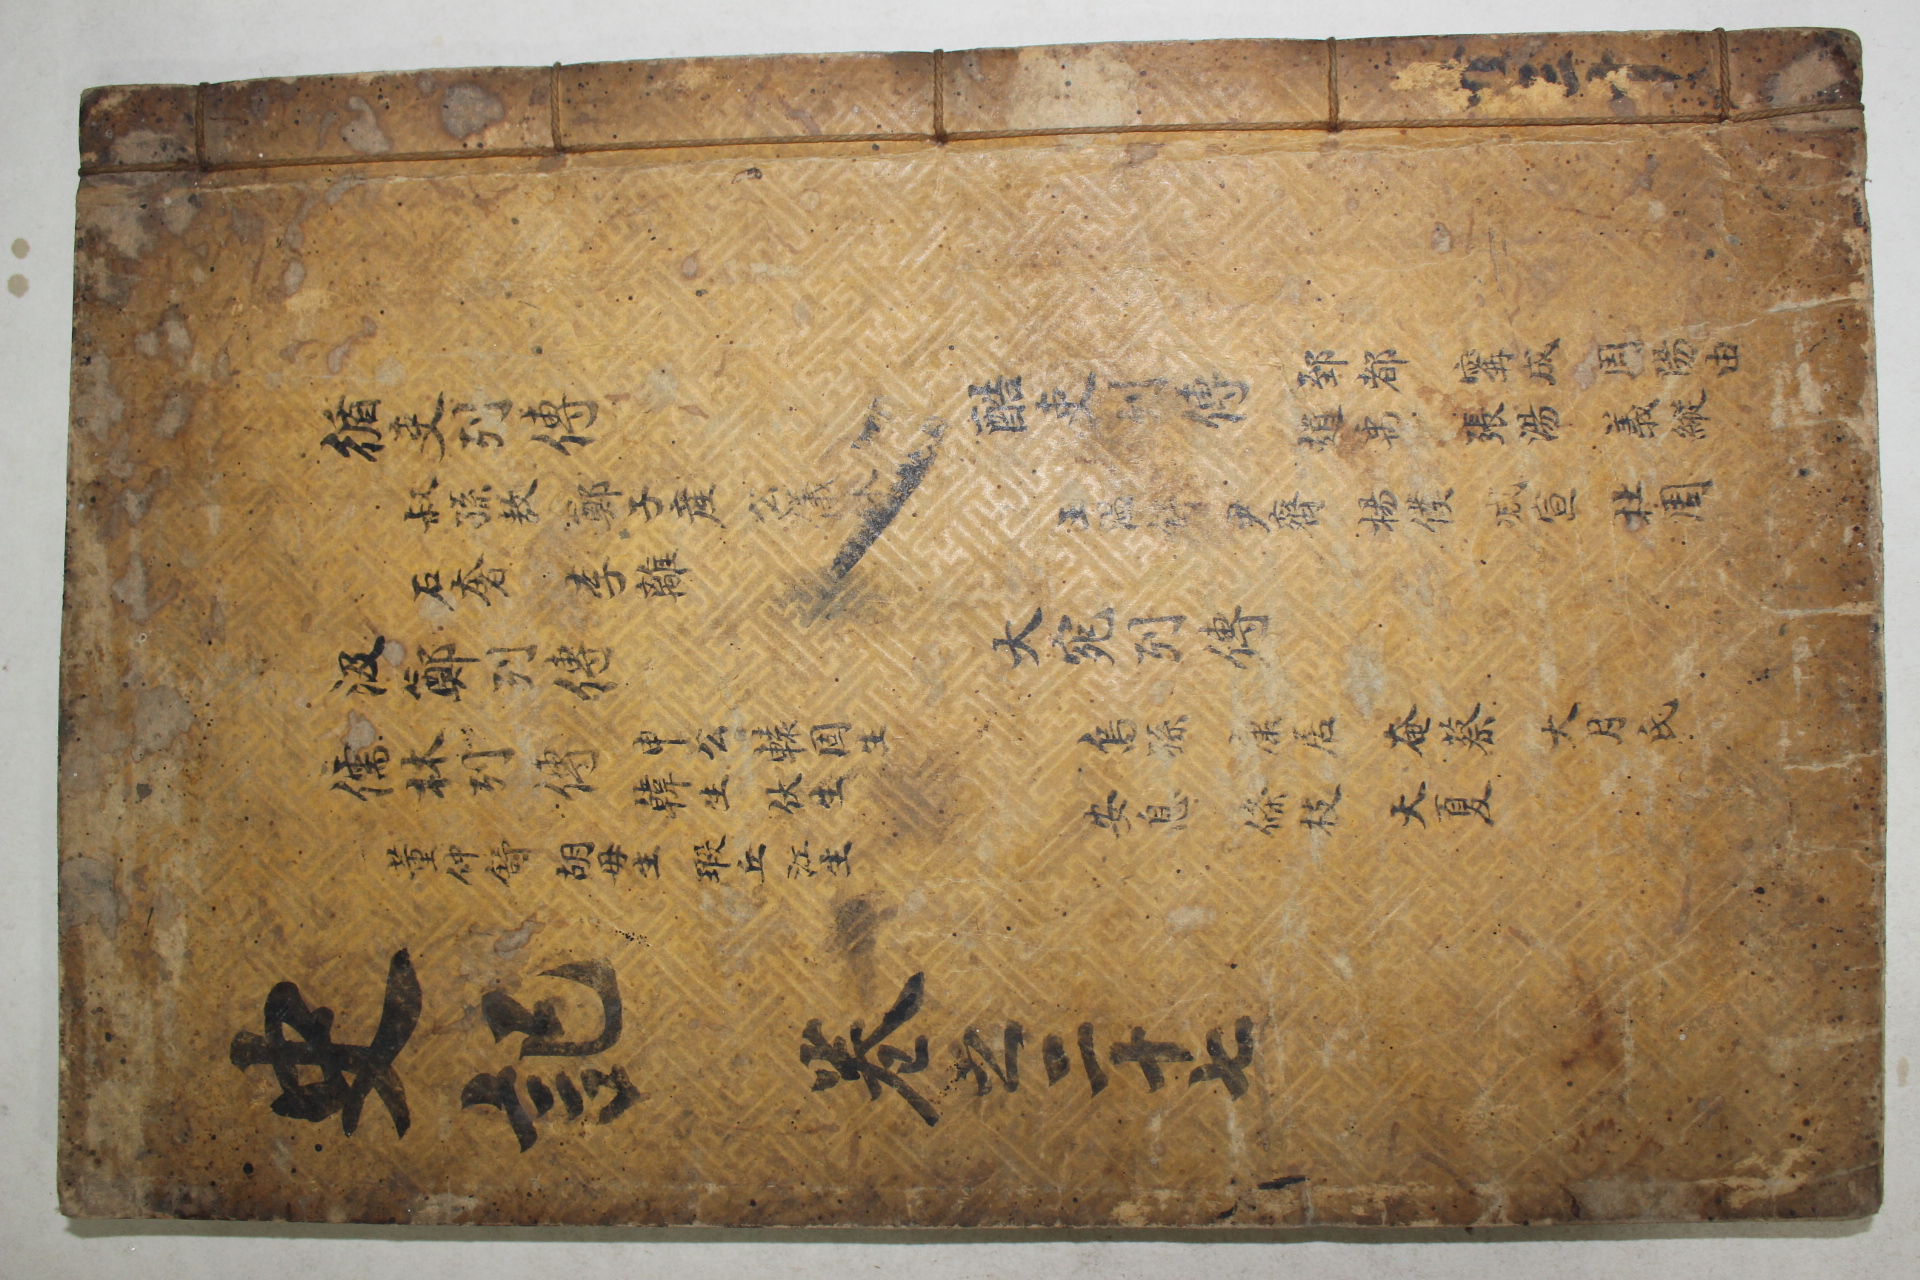 循吏列傳
叔孫敖 鄭子産 公儀休
石奢 李離
汲鄭列傳
儒林列傳
申公 轅固生
韓生 伏生
董仲舒 胡毋生 瑕丘江生
酷吏列傳
郅都 寗成 周陽由
趙禹 張湯 義縱
王溫舒 尹齊 楊僕 减宣 杜周
大宛列傳
烏孫 康居 奄蔡 大月氏
安息 條枝 大夏
史記 卷之二十七
三十